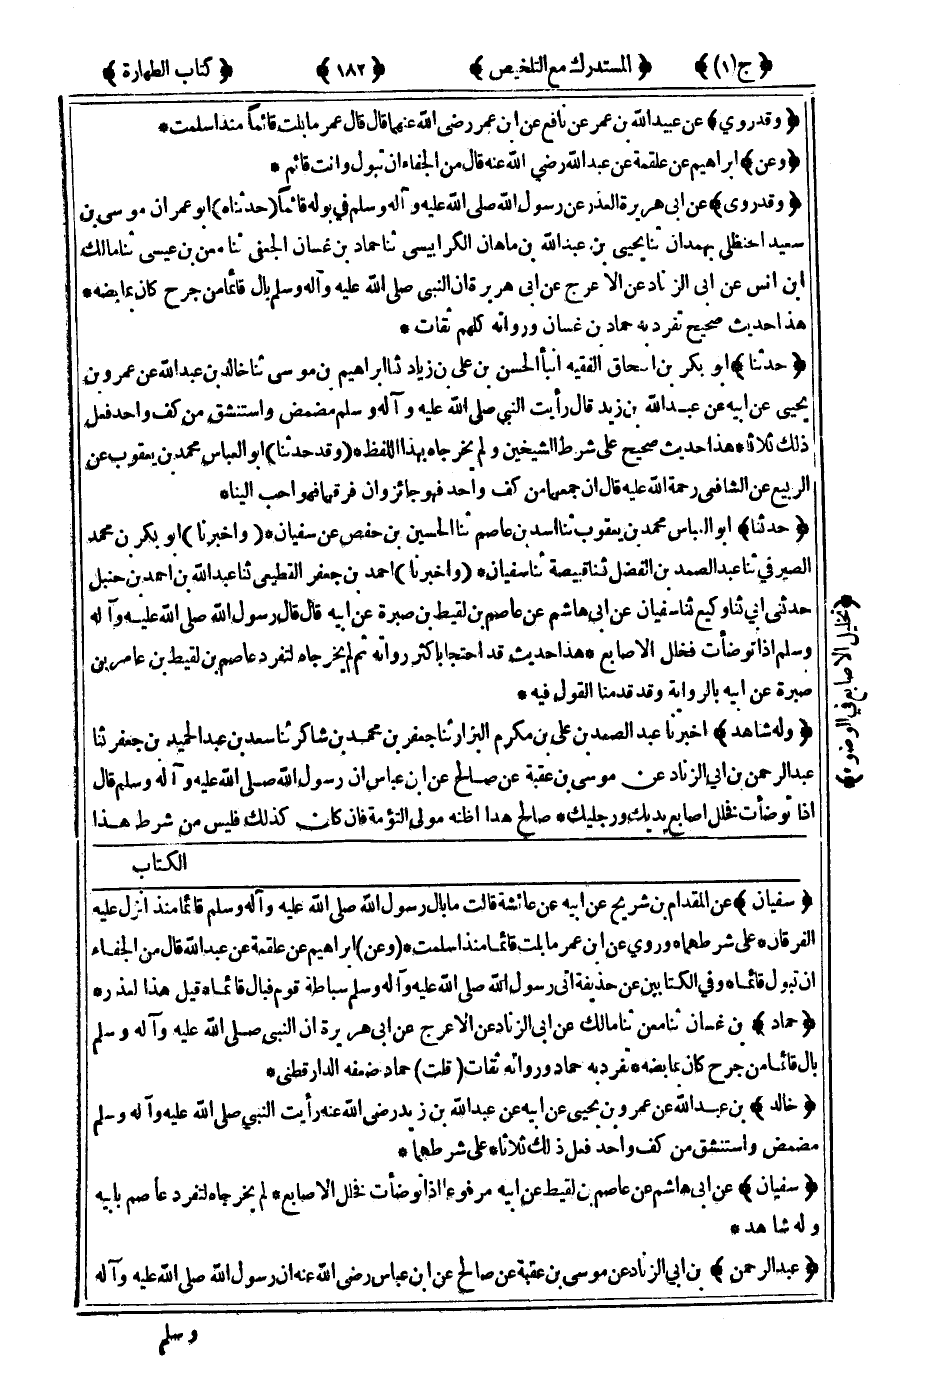 ﴿ج(١)﴾ ﴿المستدرك مع التلخيص﴾ ﴿١٨٢﴾ ﴿كتاب الطهارة﴾
﴿وقدروي﴾ عن عبيدالله بن عمر عن نافع عن ابن عمر رضى الله عنهما قال قال عمر ما بلت قائماً منذ اسلمت*
﴿وعن﴾ ابراهيم عن علقمة عن عبدالله رضي الله عنه قال من الجفاء ان تبول وانت قائم *
﴿وقدروى﴾ عن ابى هريرة العذر عن رسول الله صلى الله عليه وآله وسلم في بوله قائماً (حدثناه) ابو عمران موسى بن
سعيد احنظلى بهمدان ثنا يحيى بن عبدالله بن ماهان الكرابيسى ثنا حماد بن غسان الجعفى ثنا معن بن عيسى ثنا مالك
ابن انس عن ابى الزناد عن الاعرج عن ابى هريرة ان النبى صلى الله عليه وآله وسلم بال قائما من جرح كان بمابضه*
هذا حديث صحيح تفرد به حماد بن غسان ورواته كلهم ثقات *
﴿حدثنا﴾ ابو بكر بن اسحاق الفقيه انبأ الحسن بن على بن زياد ثنا ابراهيم بن موسى ثنا خالد بن عبدالله عن عمرو بن
يحيى عن ابيه عن عبدالله بن زيد قال رأيت النبي صلى الله عليه وآله وسلم مضمض واستنشق من كف واحد فعل
ذلك ثلاثا* هذا حديث صحيح على شرط الشيخين ولم يخرجاه بهذا اللفظ* (وقد حدثنا) ابو العباس محمد بن يعقوب عن
الربيع عن الشافعى رحمة الله عليه قال ان جمعهما من كف واحد فهو جائز وان فرقهما فهو احب الينا*
﴿حدثنا﴾ ابو العباس محمد بن يعقوب ثنا اسد بن عاصم ثنا الحسين بن حفص عن سفيان* (واخبرنا) ابو بكر بن محمد
الصيرفي ثنا عبدالصمد بن الفضل ثنا قبيصة ثنا سفيان* (واخبرنا) احمد بن جعفر القطيعى ثنا عبدالله بن احمد بن حنبل
حدثنى ابي ثنا وكيع ثنا سفيان عن ابى هاشم عن عاصم بن لقيط بن صبرة عن ابيه قال قال رسول الله صلى الله عليه وآله
وسلم اذا توضأت فخلل الاصابع *هذا حديث قد احتجا باكثر رواته ثم لم يخرجاه لتفرد عاصم بن لقيط بن عامر بن
صبرة عن ابيه بالرواية وقد قدمنا القول فيه *
﴿وله شاهد﴾ اخبرنا عبد الصمد بن على بن مكرم البزار ثنا جعفر بن محمد بن شاكر ثنا سعد بن عبدالحميد بن جعفر ثنا
عبدالرحمن بن ابي الزناد عن موسى بن عقبة عن صالح عن ابن عباس ان رسول الله صلى الله عليه وآله وسلم قال
اذا توضأت فخلل اصابع يديك ورجليك* صالح هذا اظنه مولى التؤمة فان كان كذلك فليس من شرط هذا
الكتاب
﴿تخليل الاصابع في الوضوء﴾
﴿سفيان﴾ عن المقدام بن شريح عن ابيه عن عائشة قالت ما بال رسول الله صلى الله عليه وآله وسلم قائما منذ انزل عليه
الفرقان* على شرطهما* وروي عن ابن عمر ما بلت قائما منذ اسلمت* (وعن) ابراهيم عن علقمة عن عبدالله قال من الجفاء
ان تبول قائما* وفي الكتابين عن حذيفة اتى رسول الله صلى الله عليه وآله وسلم سباطة قوم فبال قائما* قيل هذا لعذر*
﴿حماد﴾ بن غسان ثنا معن ثنا مالك عن ابى الزناد عن الاعرج عن ابى هريرة ان النبي صلى الله عليه وآله وسلم
بال قائما من جرح كان بمابضه* تفرد به حماد ورواته ثقات (قلت) حماد ضعفه الدارقطنى*
﴿خالد﴾ بن عبدالله عن عمرو بن يحيى عن ابيه عن عبدالله بن زيد رضى الله عنه رأيت النبي صلى الله عليه وآله وسلم
مضمض واستنشق من كف واحد فعل ذلك ثلاثا* على شرطهما*
﴿سفيان﴾ عن ابى هاشم عن عاصم بن لقيط عن ابيه مرفوعا اذا توضأت فخلل الاصابع* لم يخرجاه لتفرد عاصم بابيه
وله شاهد *
﴿عبدالرحمن﴾ بن ابي الزناد عن موسى بن عقبة عن صالح عن ابن عباس رضى الله عنه ان رسول الله صلى الله عليه وآله
وسلم